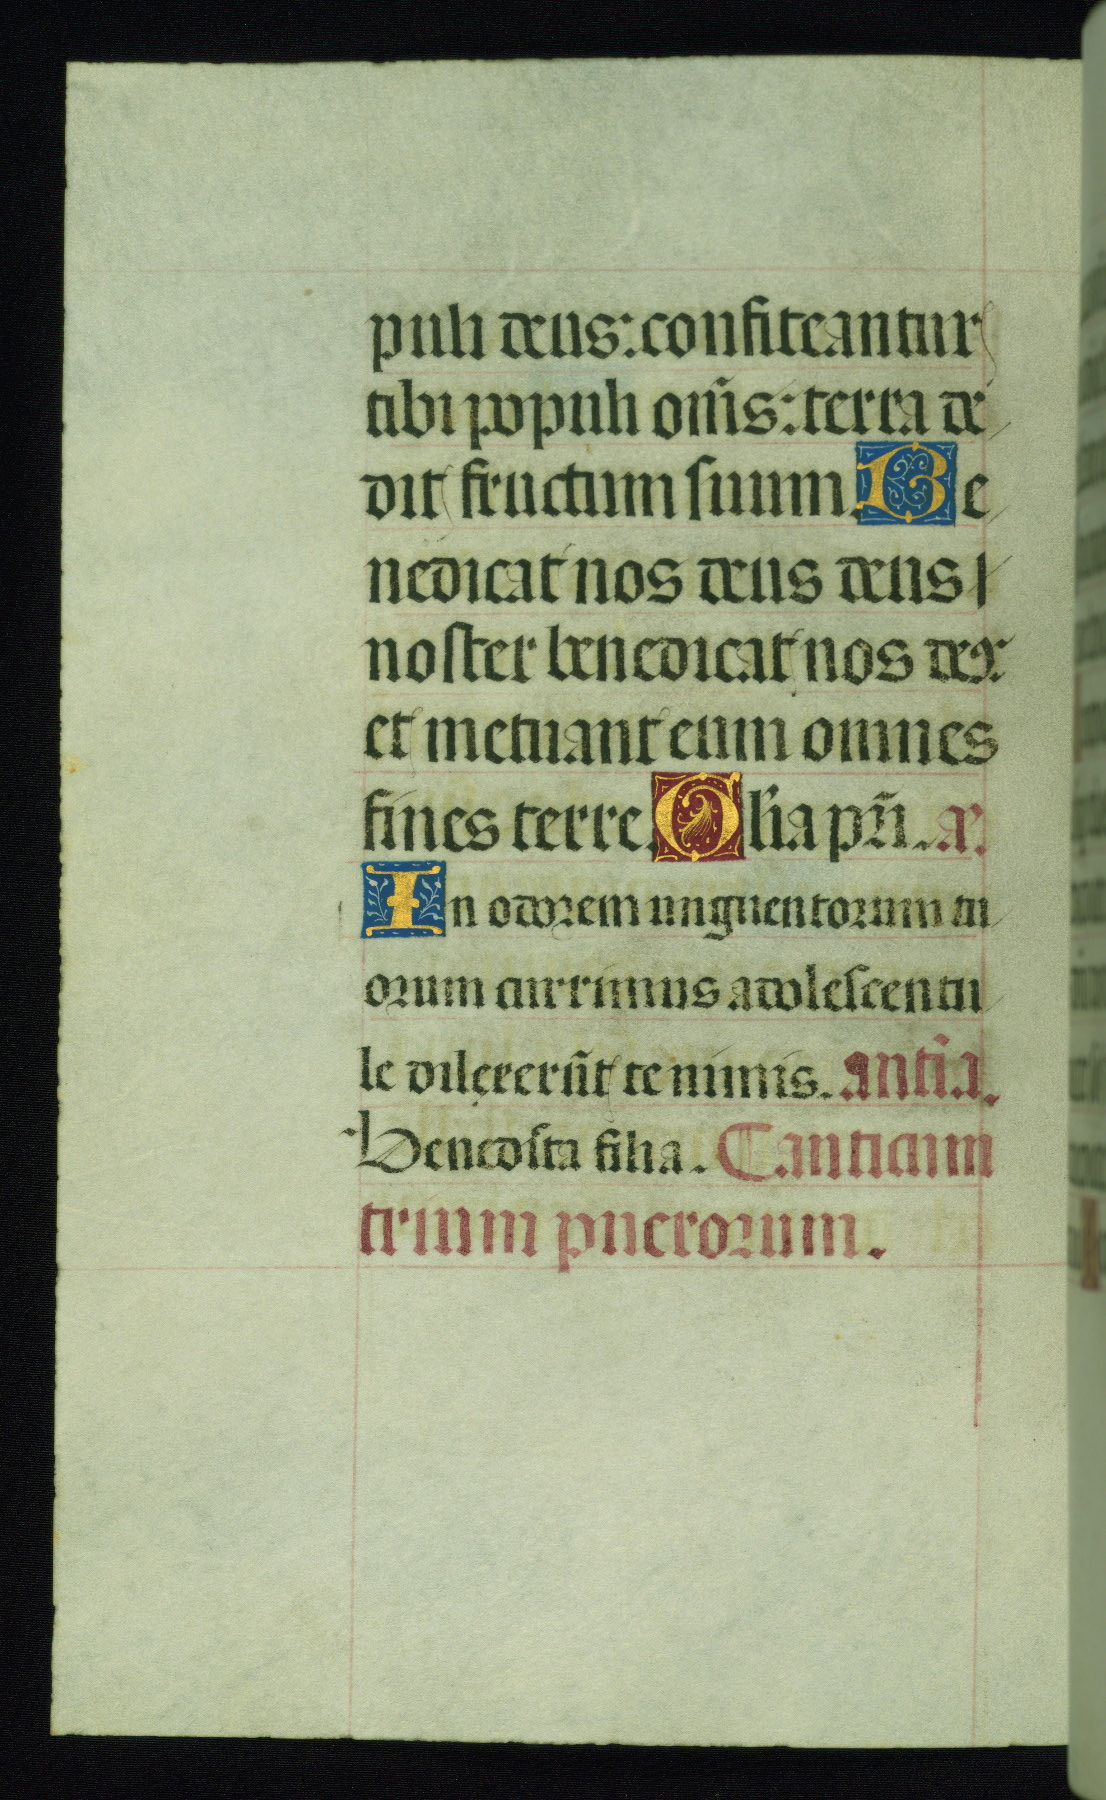 puli deus: confiteantur
tibi populi om̃s: terra de
dit fructum suum. Be
nedicat nos deus deus
noster benedicat nos de9:
et metuant eum omnes
fines terre. Gl'ia pr̃i. a.
In odorem unguentorum tu
orum currimus adolescentu
le dilexerũt te nimis. antĩa.
Benedicta filia. Canticum
trium puerorum.